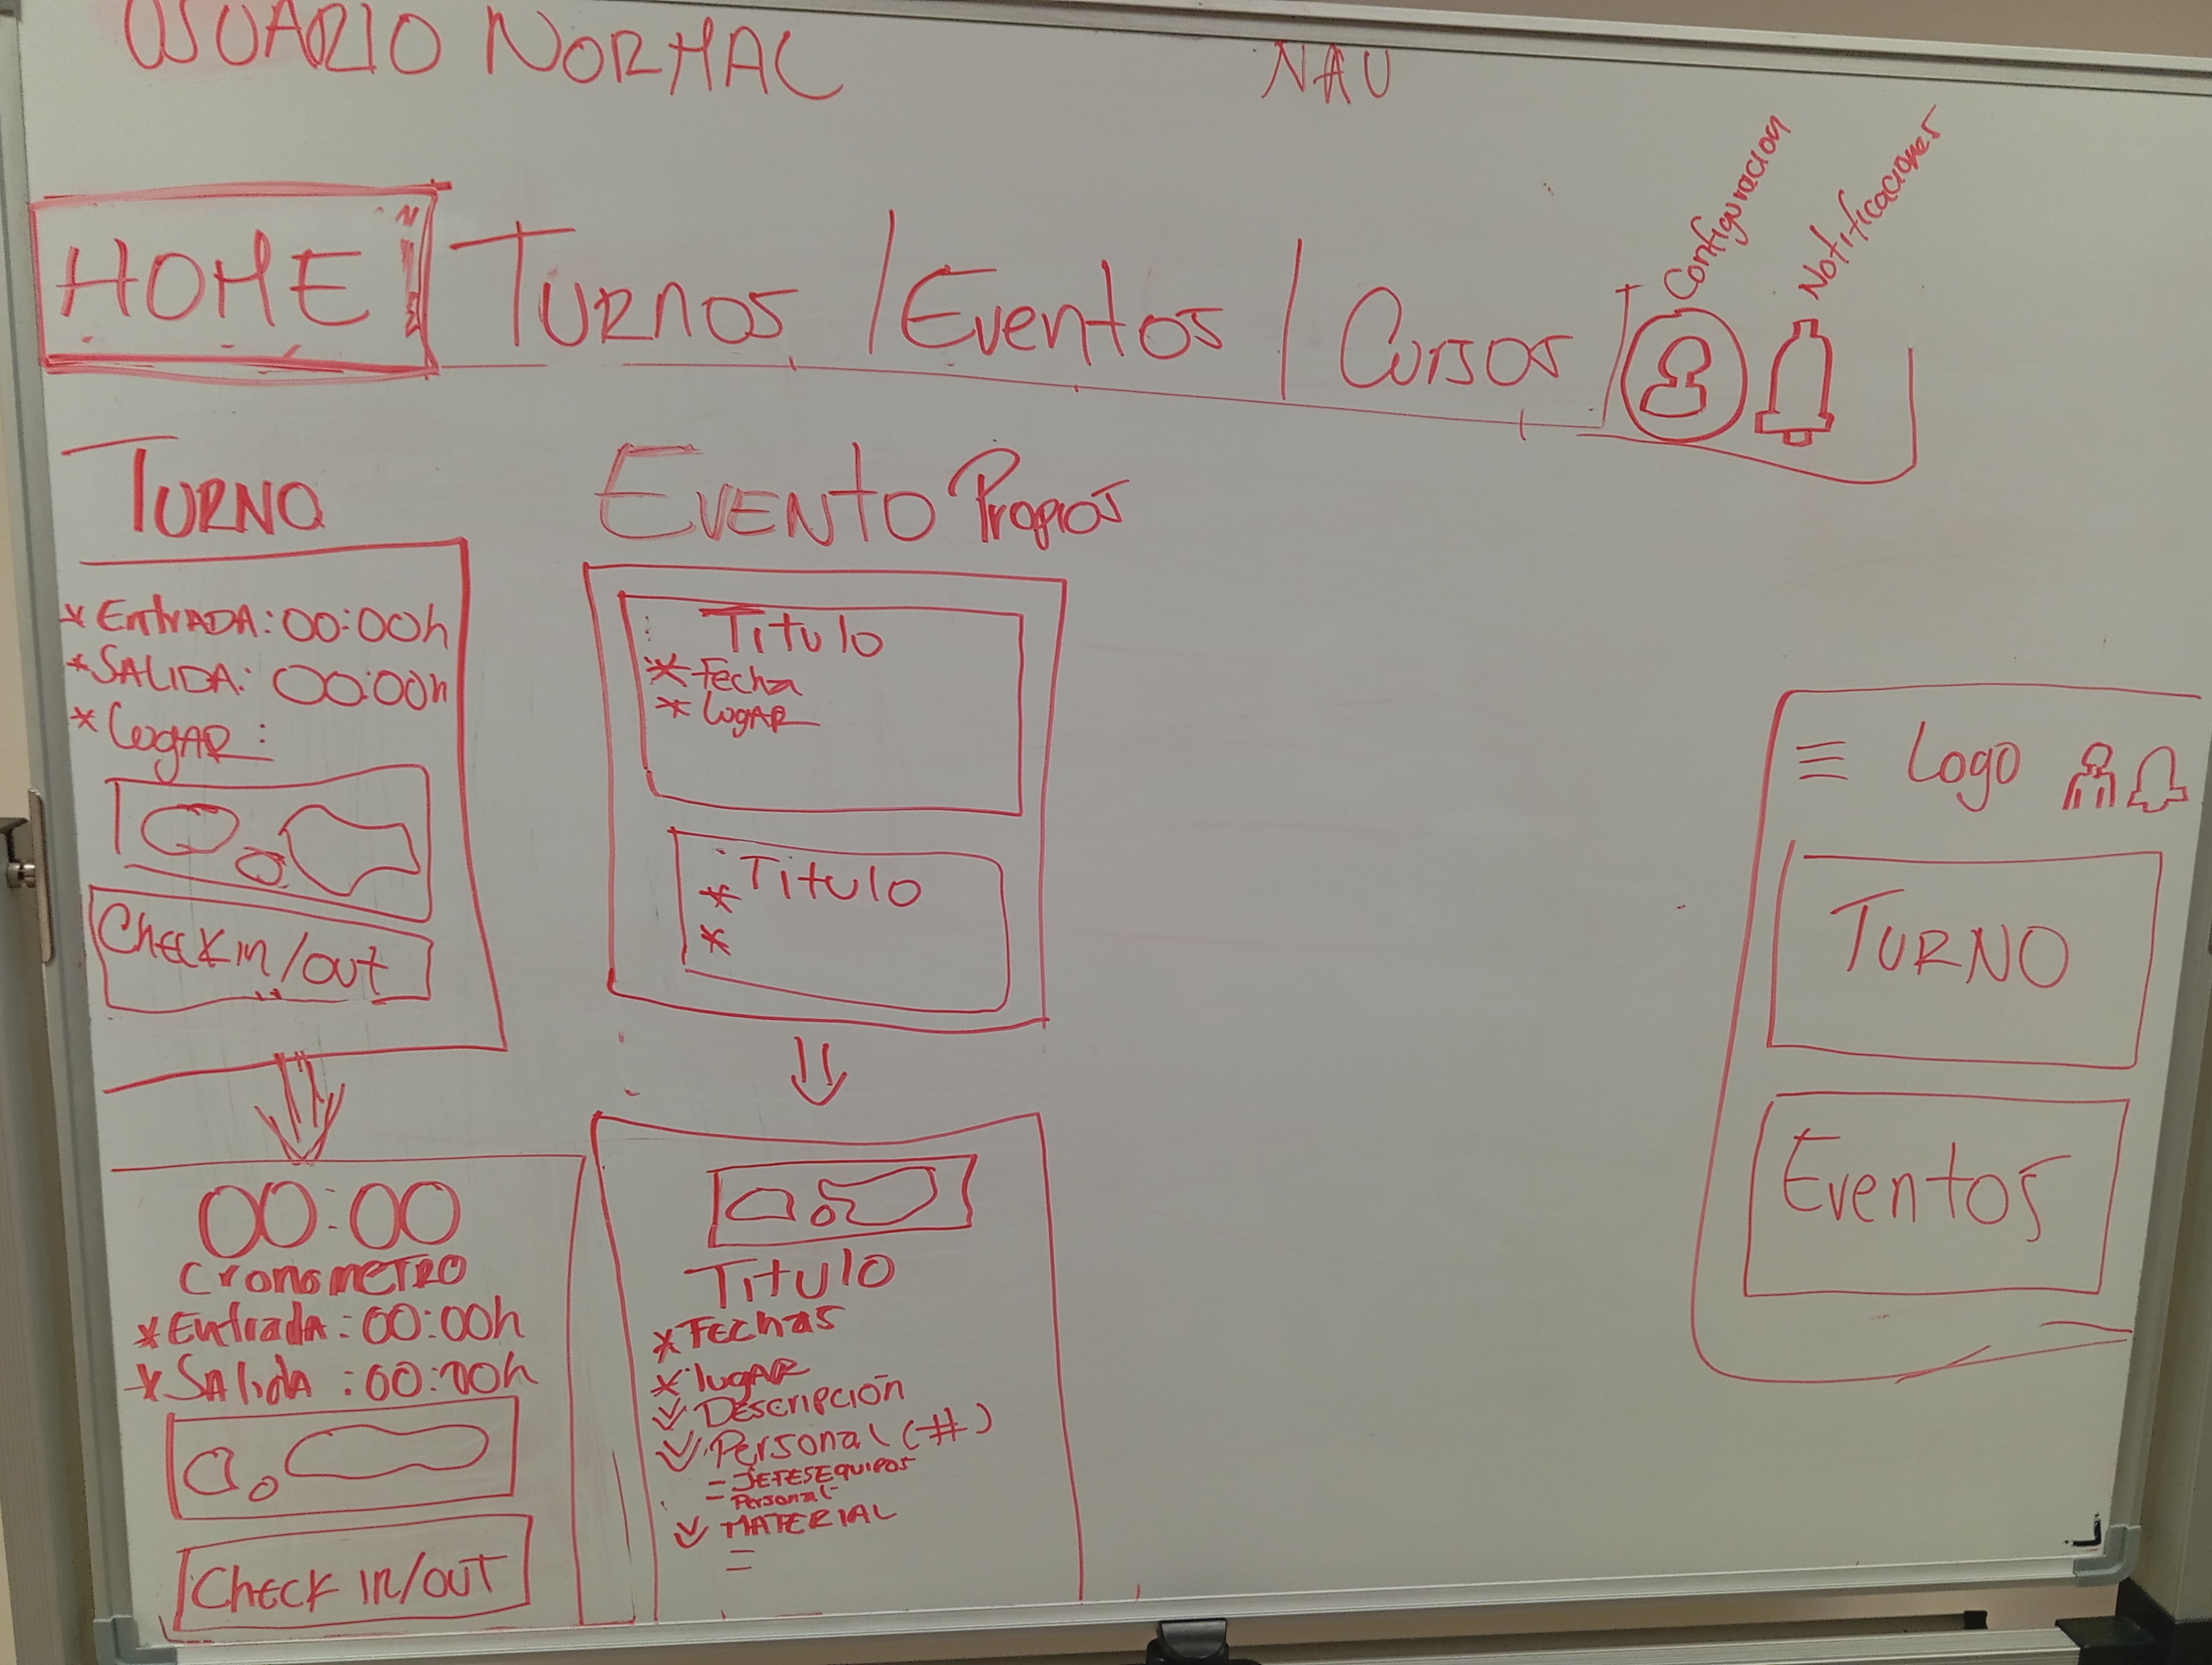 USUARIO NORMAL
NAV
Configuracion
Notificaciones
HOME Turnos / Eventos / Cursos
TURNO
* ENTRADA: 00:00h
* SALIDA: 00:00h
* LUGAR:
Check in/out
00:00
CronomETRO
* EntradA: 00:00h
* SAlidA: 00:00h
CHECK IN/OUT
EVENTO Propios
Titulo
* Fecha
* LUGAR
Titulo
*
*
Titulo
* FEChas
* lugAR
DEscripción
Personal (#)
- JEFESEquipos
- Personal
MATERIAL
Logo
TURNO
Eventos